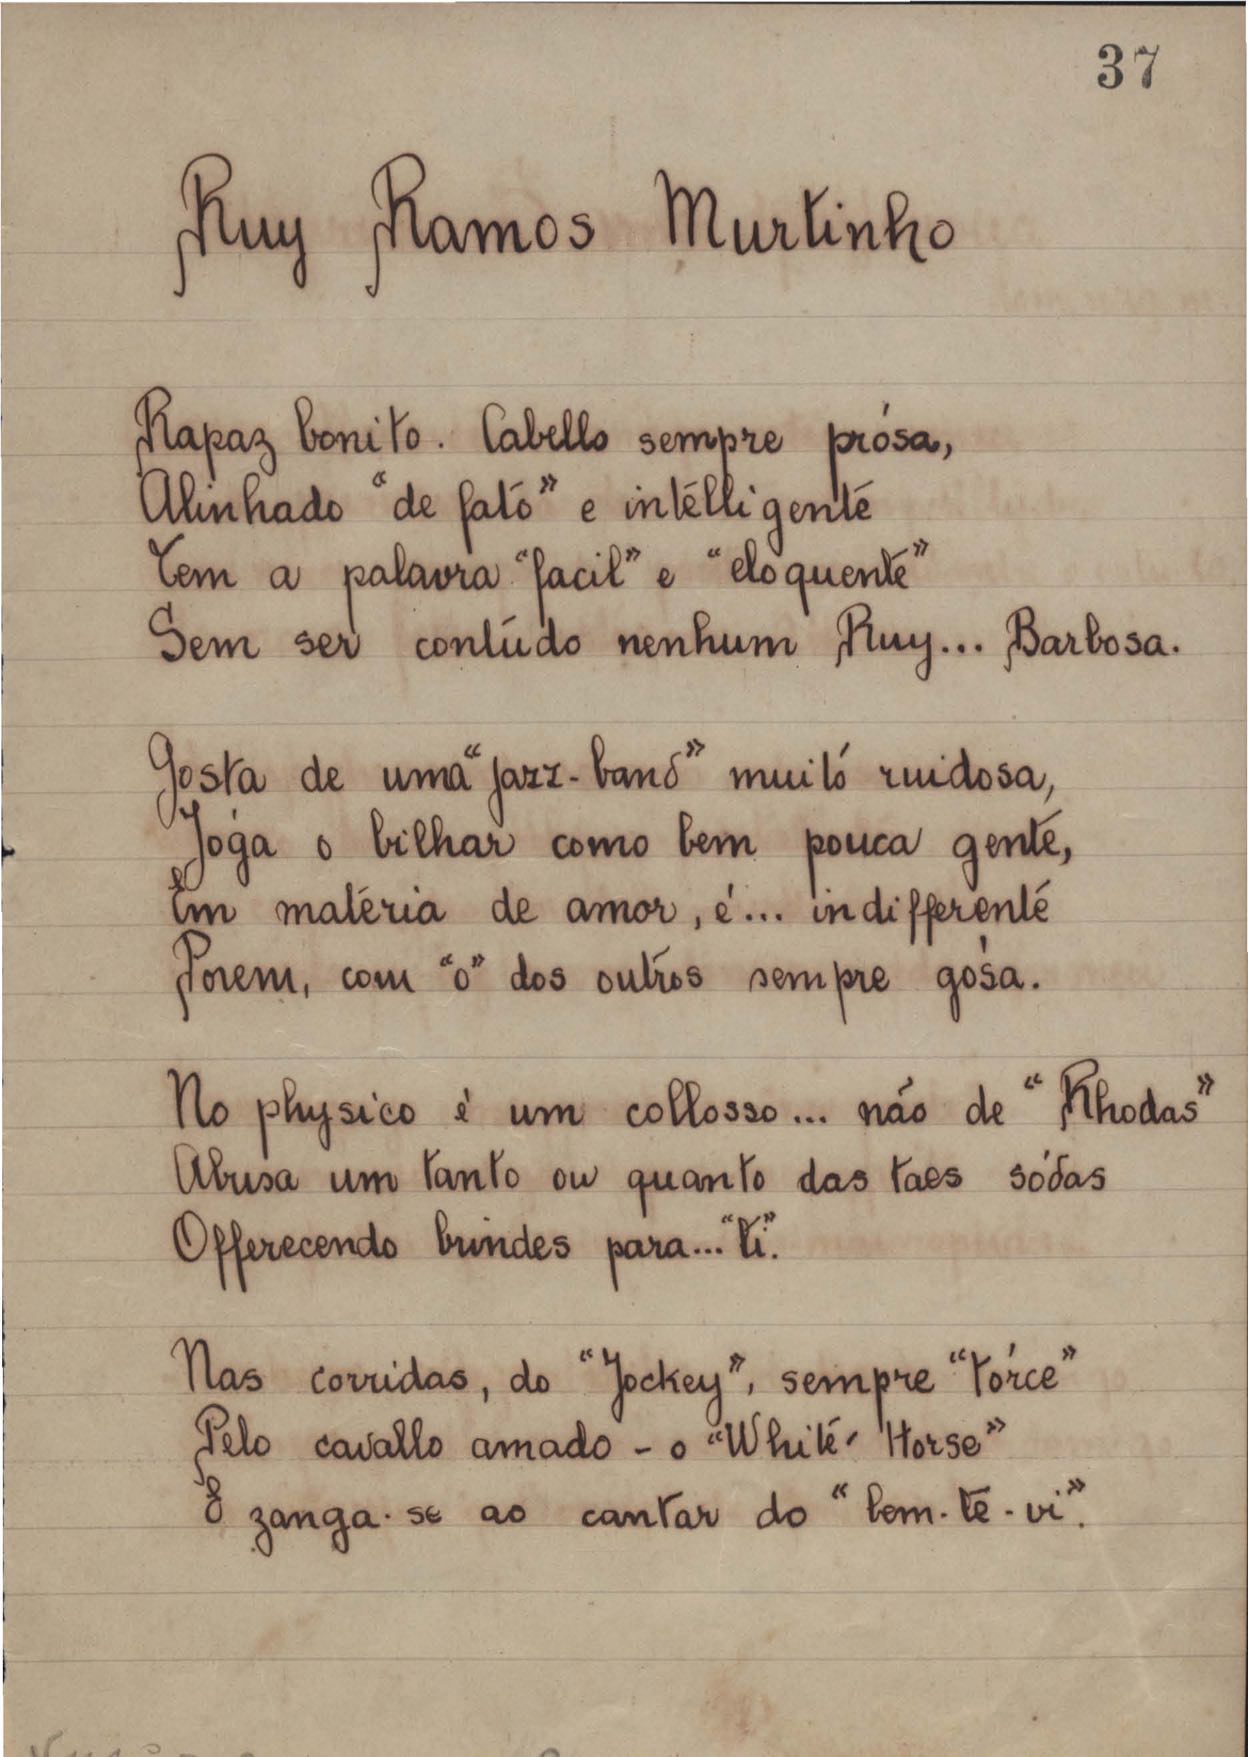 37
Ruy Ramos Murtinho
Rapaz bonito. Cabello sempre prósa,
Alinhado "de fato" e intelligente
Tem a palavra "facil" e "eloquente"
Sem ser contúdo nenhum Ruy... Barbosa.
Gosta de uma "jazz-band" muito ruidosa,
Jóga o bilhar como bem pouca gente,
Em matéria de amor, é... indifferente
Porem, com "o" dos outros sempre gósa.
No physico é um collosso... não de "Rhodas"
Abusa um tanto ou quanto das taes sódas
Offerecendo brindes para... "ti".
Nas corridas, do "Jockey", sempre "tórce"
Pelo cavallo amado - o "White-Horse"
E zanga-se ao cantar do "bem-te-vi".